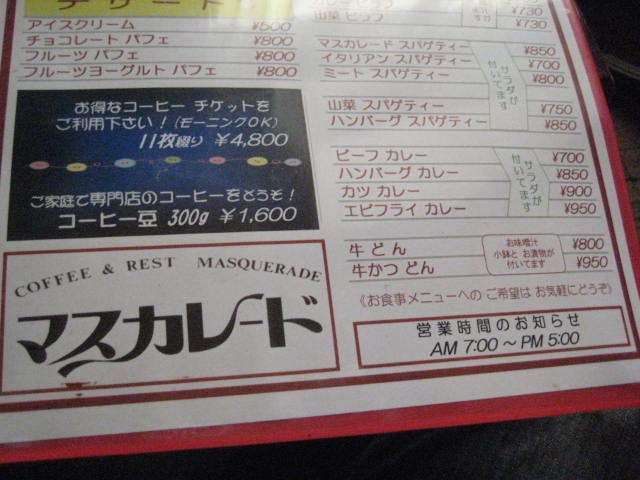 デザート
アイスクリーム ¥600
チョコレート パフェ ¥800
フルーツ パフェ ¥800
フルーツヨーグルト パフェ ¥800
お得なコーヒー チケットを
ご利用下さい！(モーニングOK)
11枚綴り ¥4,800
ご家庭で専門店のコーヒーをどうぞ！
コーヒー豆 300g ¥1,600
COFFEE & REST MASQUERADE
マスカレード
カレー ピラフ ¥730
山菜 ピラフ ¥730
マスカレード スパゲティー ¥850
イタリアン スパゲティー ¥700
ミート スパゲティー ¥800
山菜 スパゲティー ¥750
ハンバーグ スパゲティー ¥850
サラダが
付いてます
ビーフ カレー ¥700
ハンバーグ カレー ¥850
カツ カレー ¥900
エビフライ カレー ¥950
サラダが
付いてます
牛 どん ¥800
牛かつ どん ¥950
お味噌汁
小鉢と お漬物が
付いてます
《お食事メニューへの ご希望は お気軽にどうぞ》
営業時間のお知らせ
AM 7:00〜PM 5:00